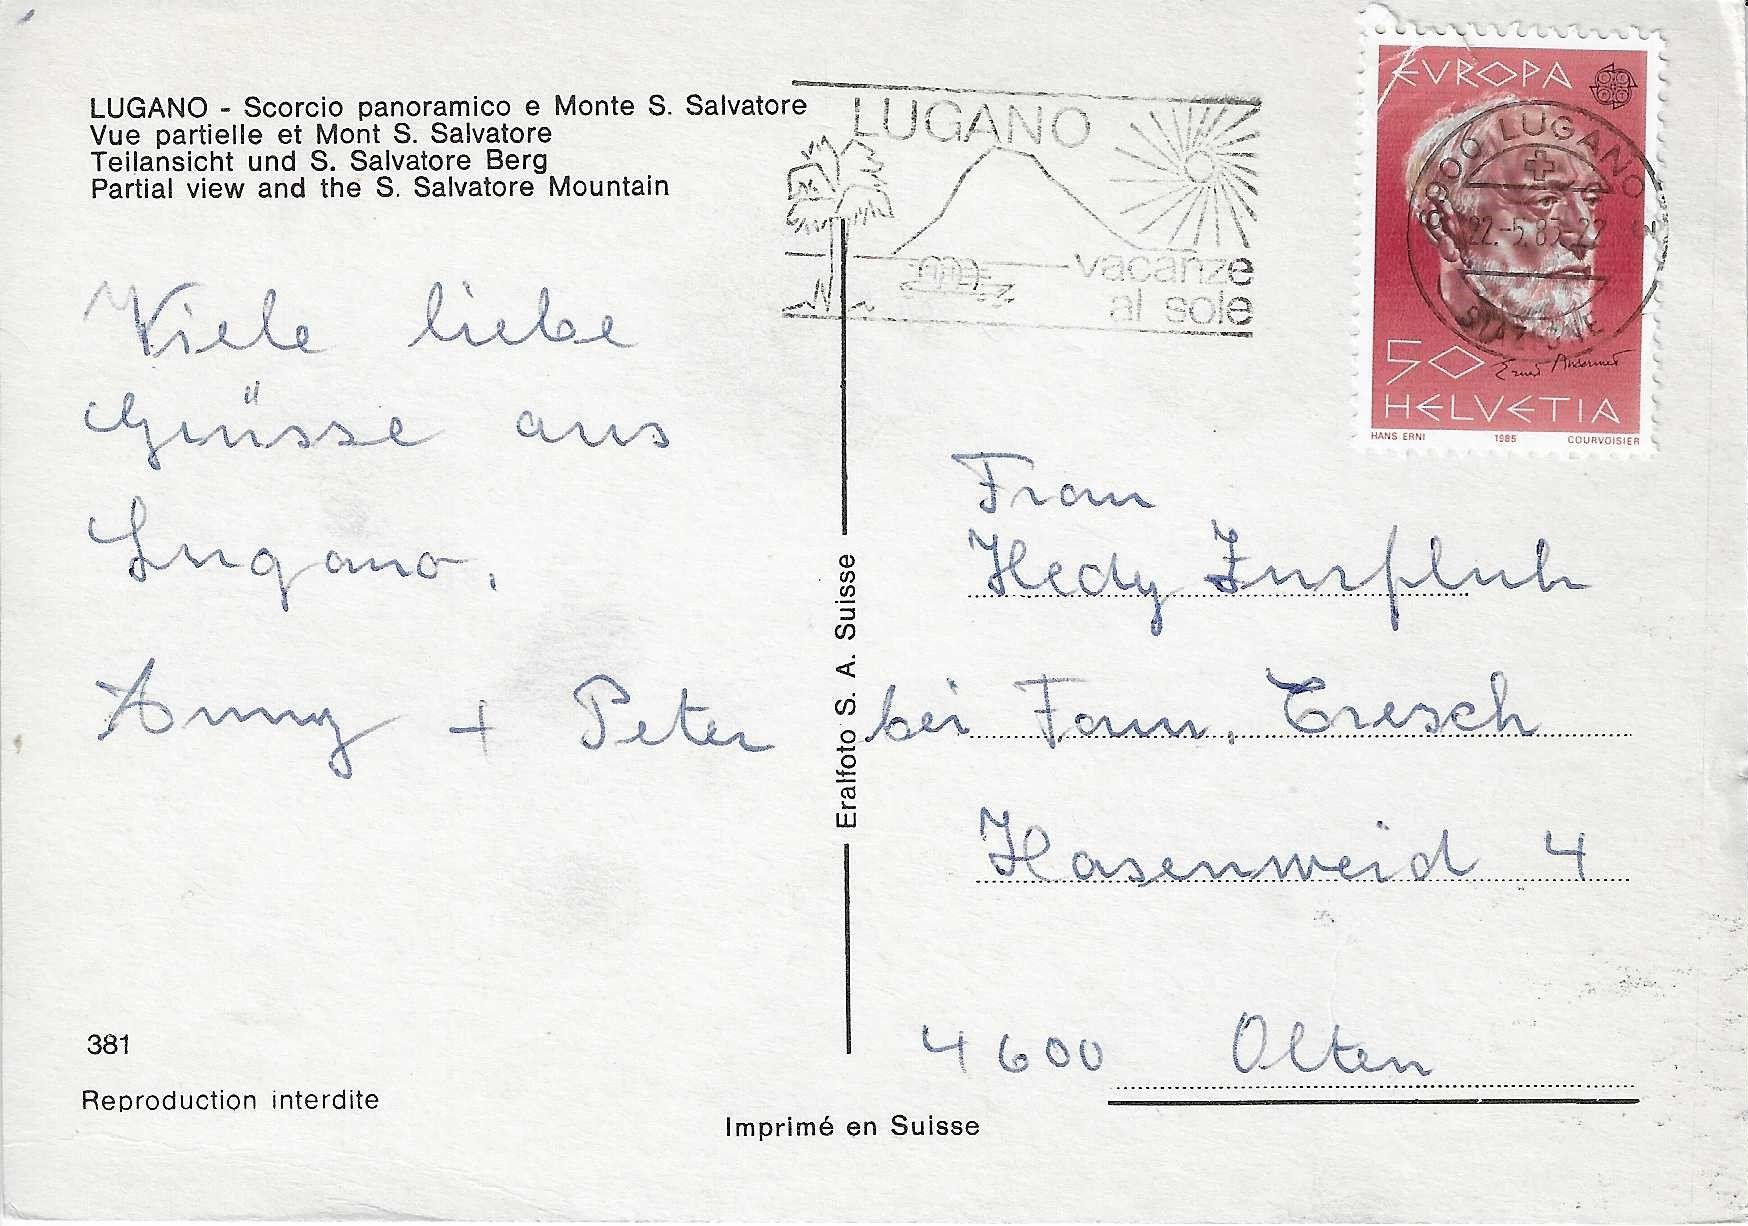 LUGANO - Scorcio panoramico e Monte S. Salvatore
Vue partielle et Mont S. Salvatore
Teilansicht und S. Salvatore Berg
Partial view and the S. Salvatore Mountain
LUGANO
vacanze
al sole
EVROPA
6906 LUGANO 2
22.-5.85-22
STAZIONE
50
Ernest Ansermet
HELVETIA
HANS ERNI 1985 COURVOISIER
Viele liebe
Grüsse aus
Lugano.
Anny + Peter
Frau
Hedy Zurfluh
bei Fam. Cresch
Hasenweid 4
4600 Olten
Eralfoto S. A. Suisse
381
Reproduction interdite
Imprimé en Suisse